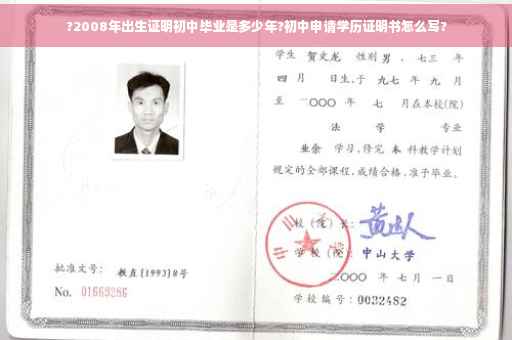 ?2008年出生证明初中毕业是多少年?初中申请学历证明书怎么写?
学生 贺文龙 性别 男 、七三 年
四 月 日生,于 九七 年 九 月
至 二〇〇〇 年 七 月在本校(院)
法 学 专业
业余 学习,修完 本 科教学计划
规定的全部课程,成绩合格,准予毕业。
校(院)长:
学校(院): 中山大学
批准文号: 教直[1993]8号
二〇〇〇 年 七 月 一 日
No. 01669286
学校编号: 0032482